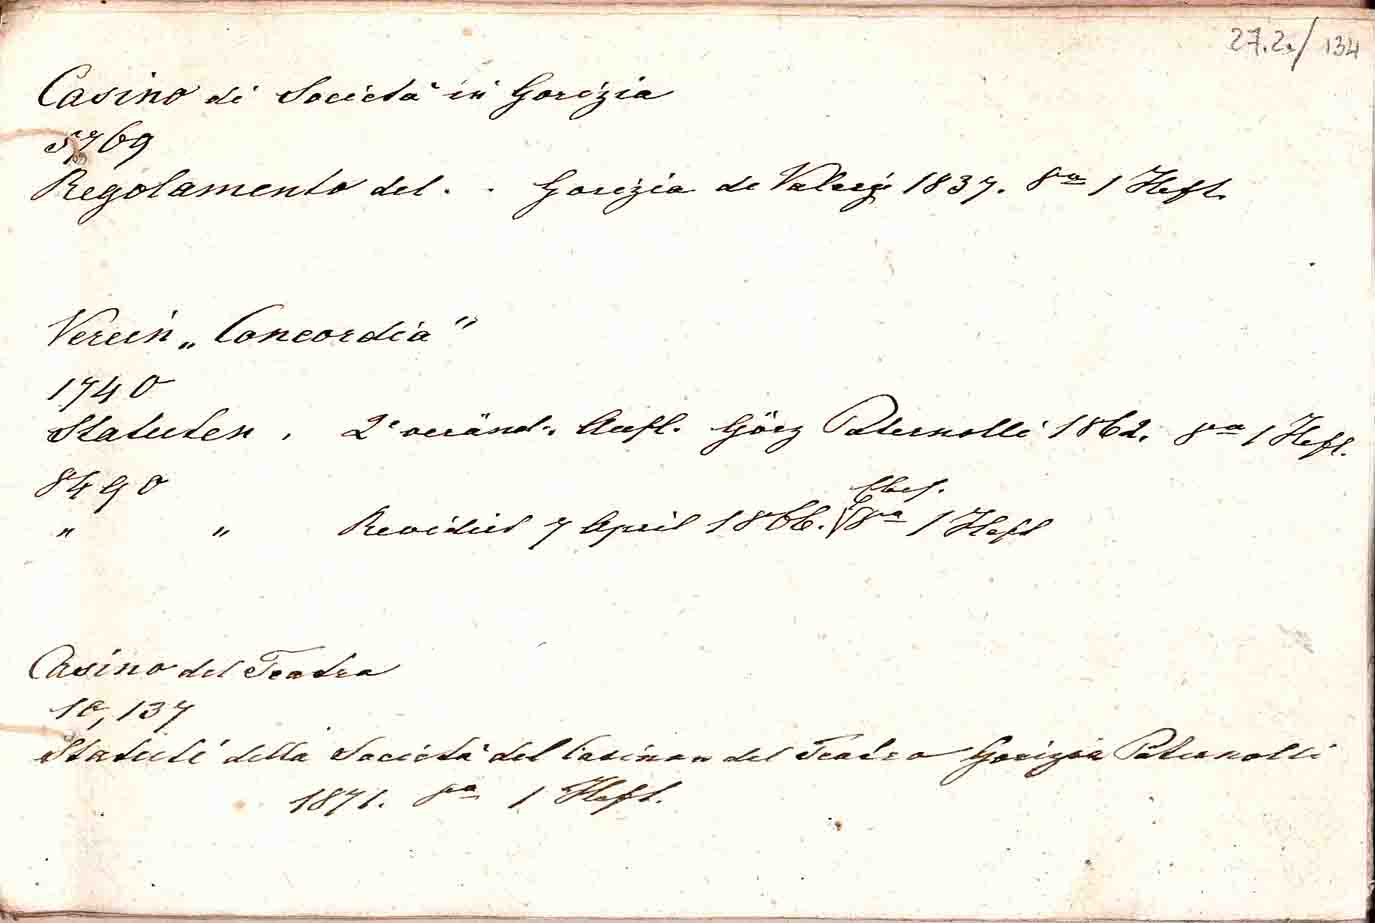 27.2./134
Casino di Società in Gorizia
5,769
Regolamento del . . Gorizia de Valerj 1837. 8va 1 Heft.
Verein „Concordia"
1740
Statuten . 2e veränd. Aufl. Görz Paternolli 1862. 8va 1 Heft.
8490
Ebef.
„ „ Revidirt 7 April 1866. 8va 1 Heft
Casino del Teatro
10,137
Statuti della Società del Casino del Teatro Gorizia Paternolli
1871. 8va 1 Heft.